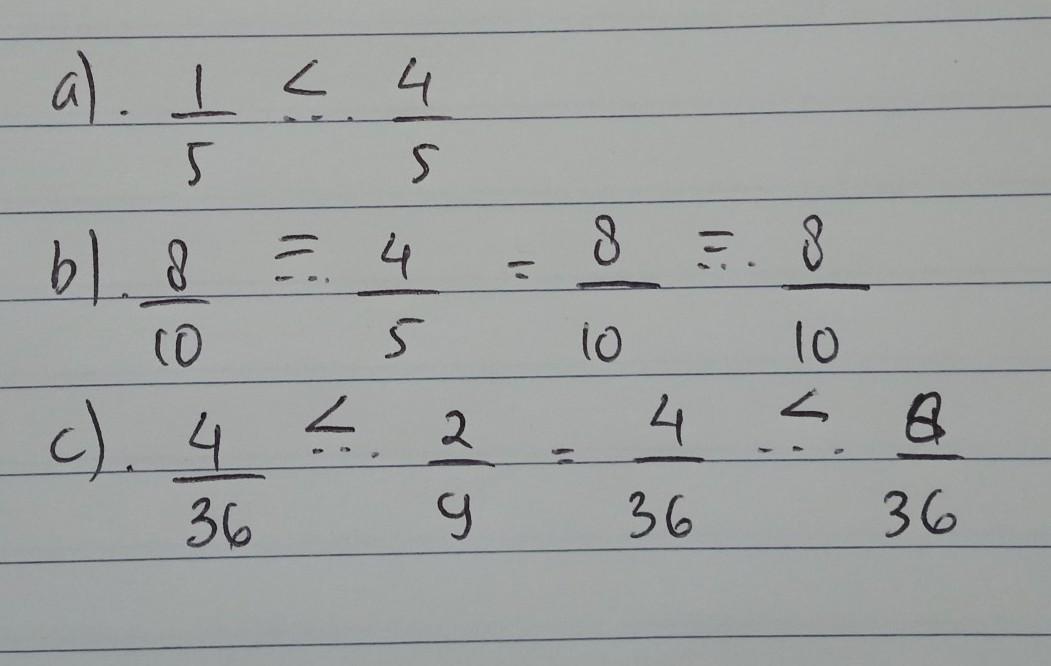 a). 1/5 <... 4/5
b). 8/10 =... 4/5 = 8/10 =... 8/10
c). 4/36 <... 2/9 = 4/36 <... /36